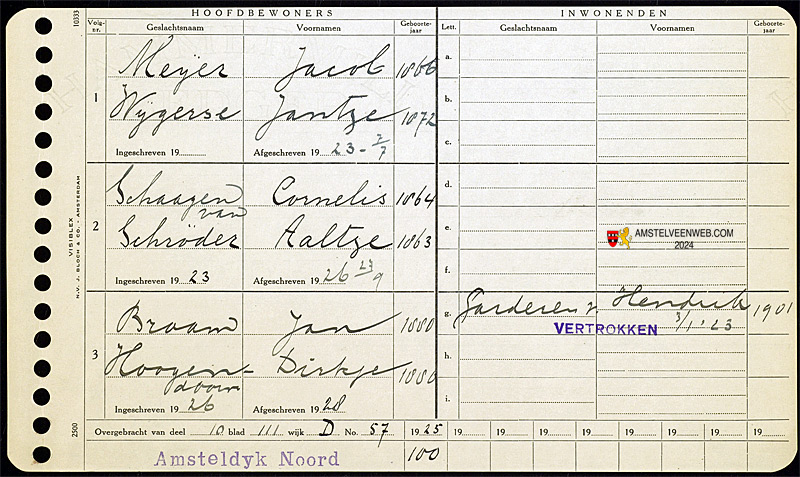 HOOFDBEWONERS INWONENDEN
10333
Volg-nr. Geslachtsnaam Voornamen Geboorte-jaar Lett. Geslachtsnaam Voornamen Geboorte-jaar
Meijer Jacob 1866 a.
1
Wijgerse Jantje 1872 b.
c.
Ingeschreven 19 Afgeschreven 19 23 - 7/7
Schaagen van Cornelis 1864 d.
2
Schröder Aaltje 1863 e.
AMSTELVEENWEB.COM
2024
f.
Ingeschreven 19 23 Afgeschreven 19 26 23/9
VISIBLEX
N.V. J. BLOCH & CO. - AMSTERDAM
Braam Jan 1880 g. Garderen v. Hendrik 1901
VERTROKKEN 3/1 '23
3
Hoogen-doorn Dirkje 1880 h.
i.
Ingeschreven 19 26 Afgeschreven 19 28
2500
Overgebracht van deel 10 blad 111 wijk D No. 57 19 25 19 19 19 19 19 19 19 19
Amsteldyk Noord 100